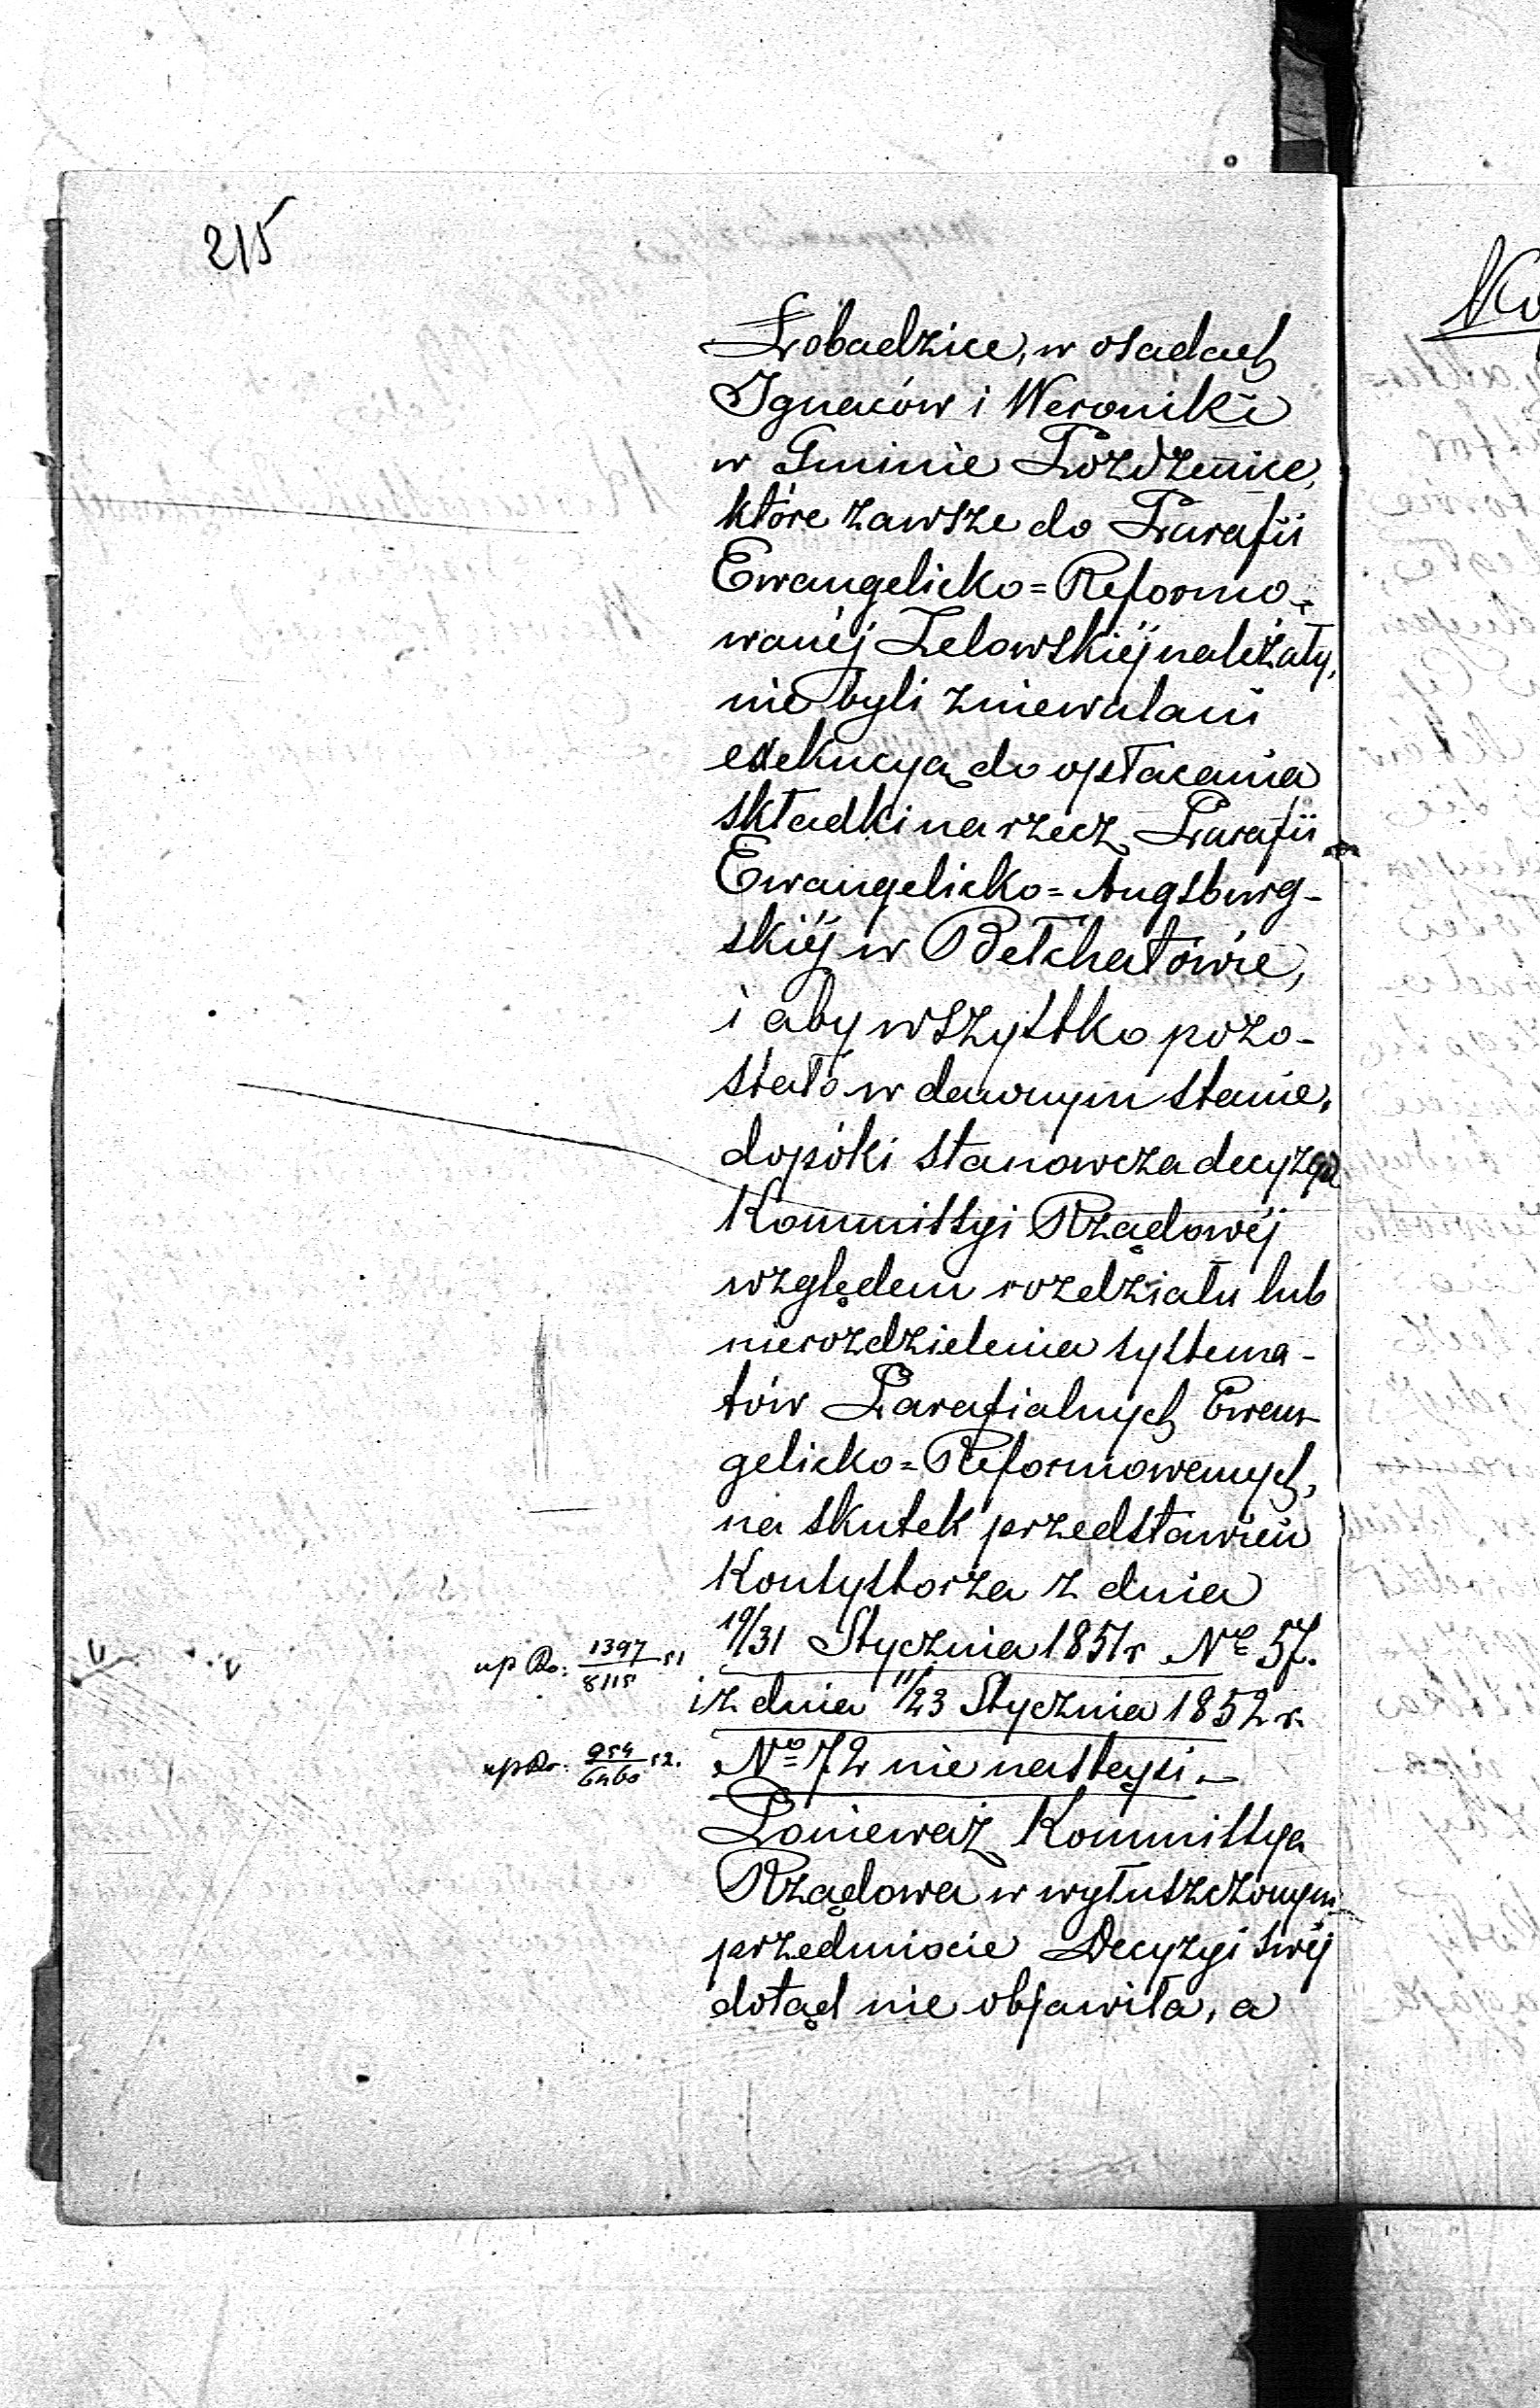 215
Łobadzice, w osadach
Ignaców i Weronika
w Gminie Pozdzenice,
które zawsze do Parafii
Ewangelicko=Reformo-
wanéj Zelowskiéj należały,
nie byli zniewalani
exekucyą do opłacania
składki na rzecz Parafii
Ewangelicko=Augsburg-
skiéj w Bełchatowie,
i aby wszystko pozo-
stało w dawnym stanie,
dopóki stanowcza decyzya
Kommissyi Rządowéj
względem rozdziału lub
nierozdzielenia systema-
tów Parafialnych Ewan-
gelicko=Reformowanych,
na skutek przedstawień
Konsystorza z dnia
19/31 Stycznia 1851 r No 57.
up Do: 1397/8115 51
i z dnia 11/23 Stycznia 1852 r.
No 72 nie nastąpi.–
up Do: 954/6460 52.
Ponieważ Kommissya
Rządowa w wyłuszczonym
przedmiocie Decyzyi swéj
dotąd nie objawiła, a